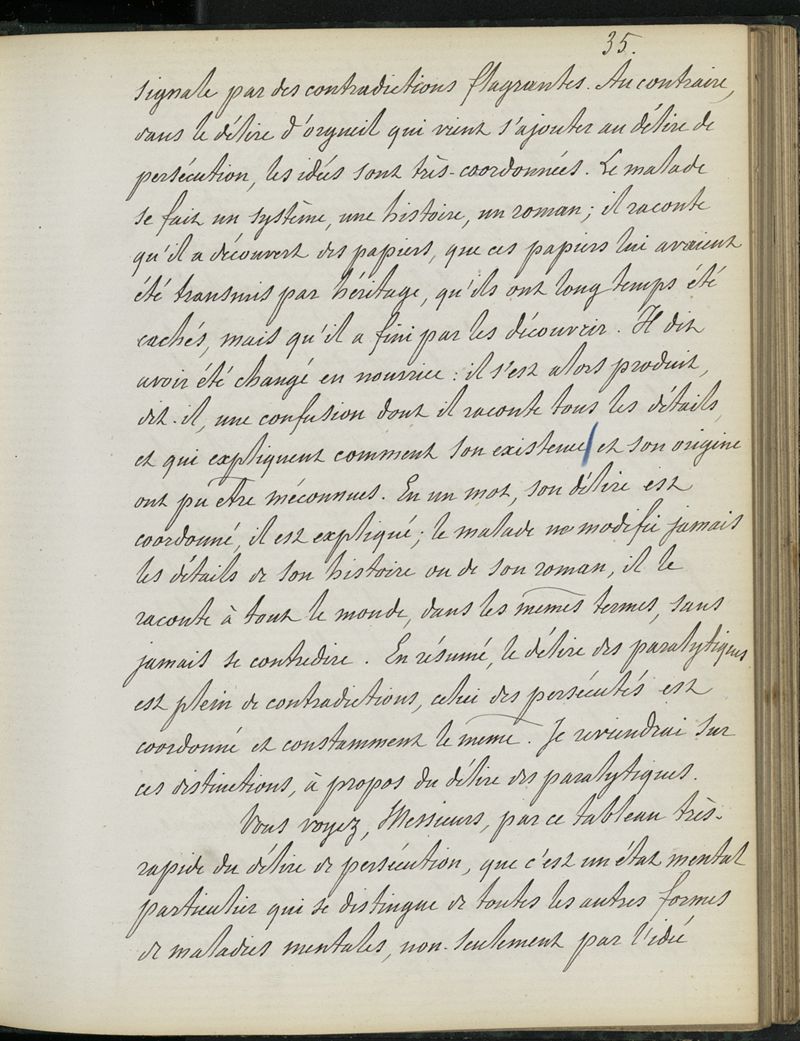 35.
signale par des contradictions flagrantes. Au contraire,
dans le délire d'orgueil qui vient s'ajouter au délire de
persécution, les idées sont très-coordonnées. Le malade
se fait un système, une histoire, un roman ; il raconte
qu'il a découvert des papiers, que ces papiers lui avaient
été transmis par héritage, qu'ils ont longtemps été
cachés, mais qu'il a fini par les découvrir. Il dit
avoir été changé en nourrice : il s'est alors produit,
dit-il, une confusion dont il raconte tous les détails,
et qui expliquent comment son existence et son origine
ont pu être méconnues. En un mot, son délire est
coordonné, il est expliqué ; le malade ne modifie jamais
les détails de son histoire ou de son roman, il le
raconte à tout le monde, dans les mêmes termes, sans
jamais se contredire. En résumé, le délire des paralytiques
est plein de contradictions, celui des persécutés est
coordonné et constamment le même. Je reviendrai sur
ces distinctions, à propos du délire des paralytiques.
Vous voyez, Messieurs, par ce tableau très-
rapide du délire de persécution, que c'est un état mental
particulier qui se distingue de toutes les autres formes
de maladies mentales, non-seulement par l'idée